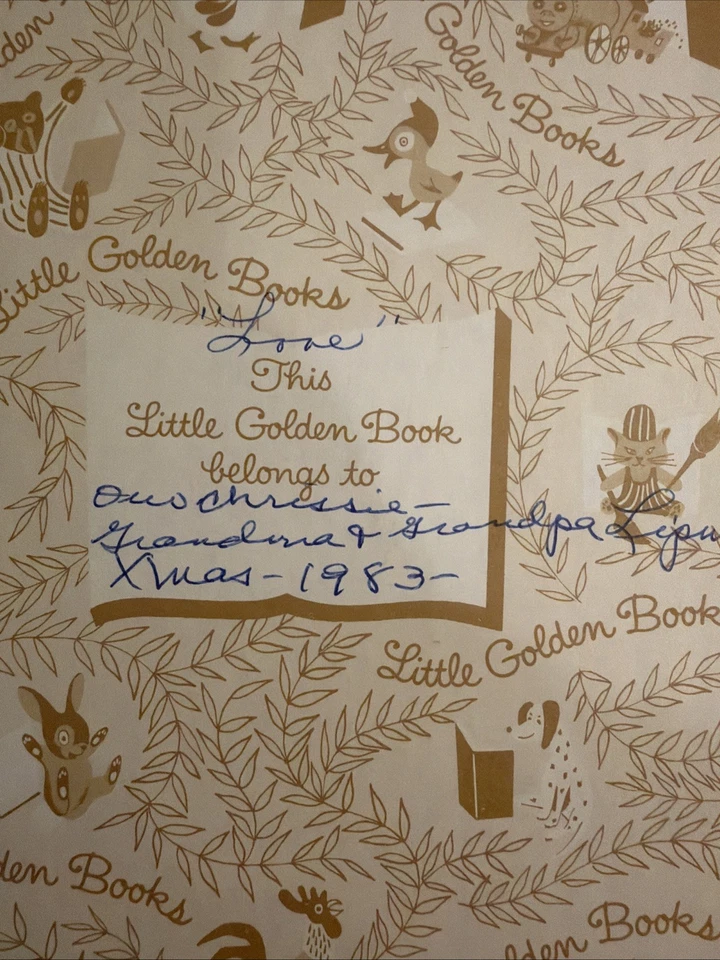 den
Golden Books
Little Golden Books
"Love"
This
Little Golden Book
belongs to
Our Chrissie-
Grandma & Grandpa
Xmas-1983-
Little Golden Book
den Books
lden Books